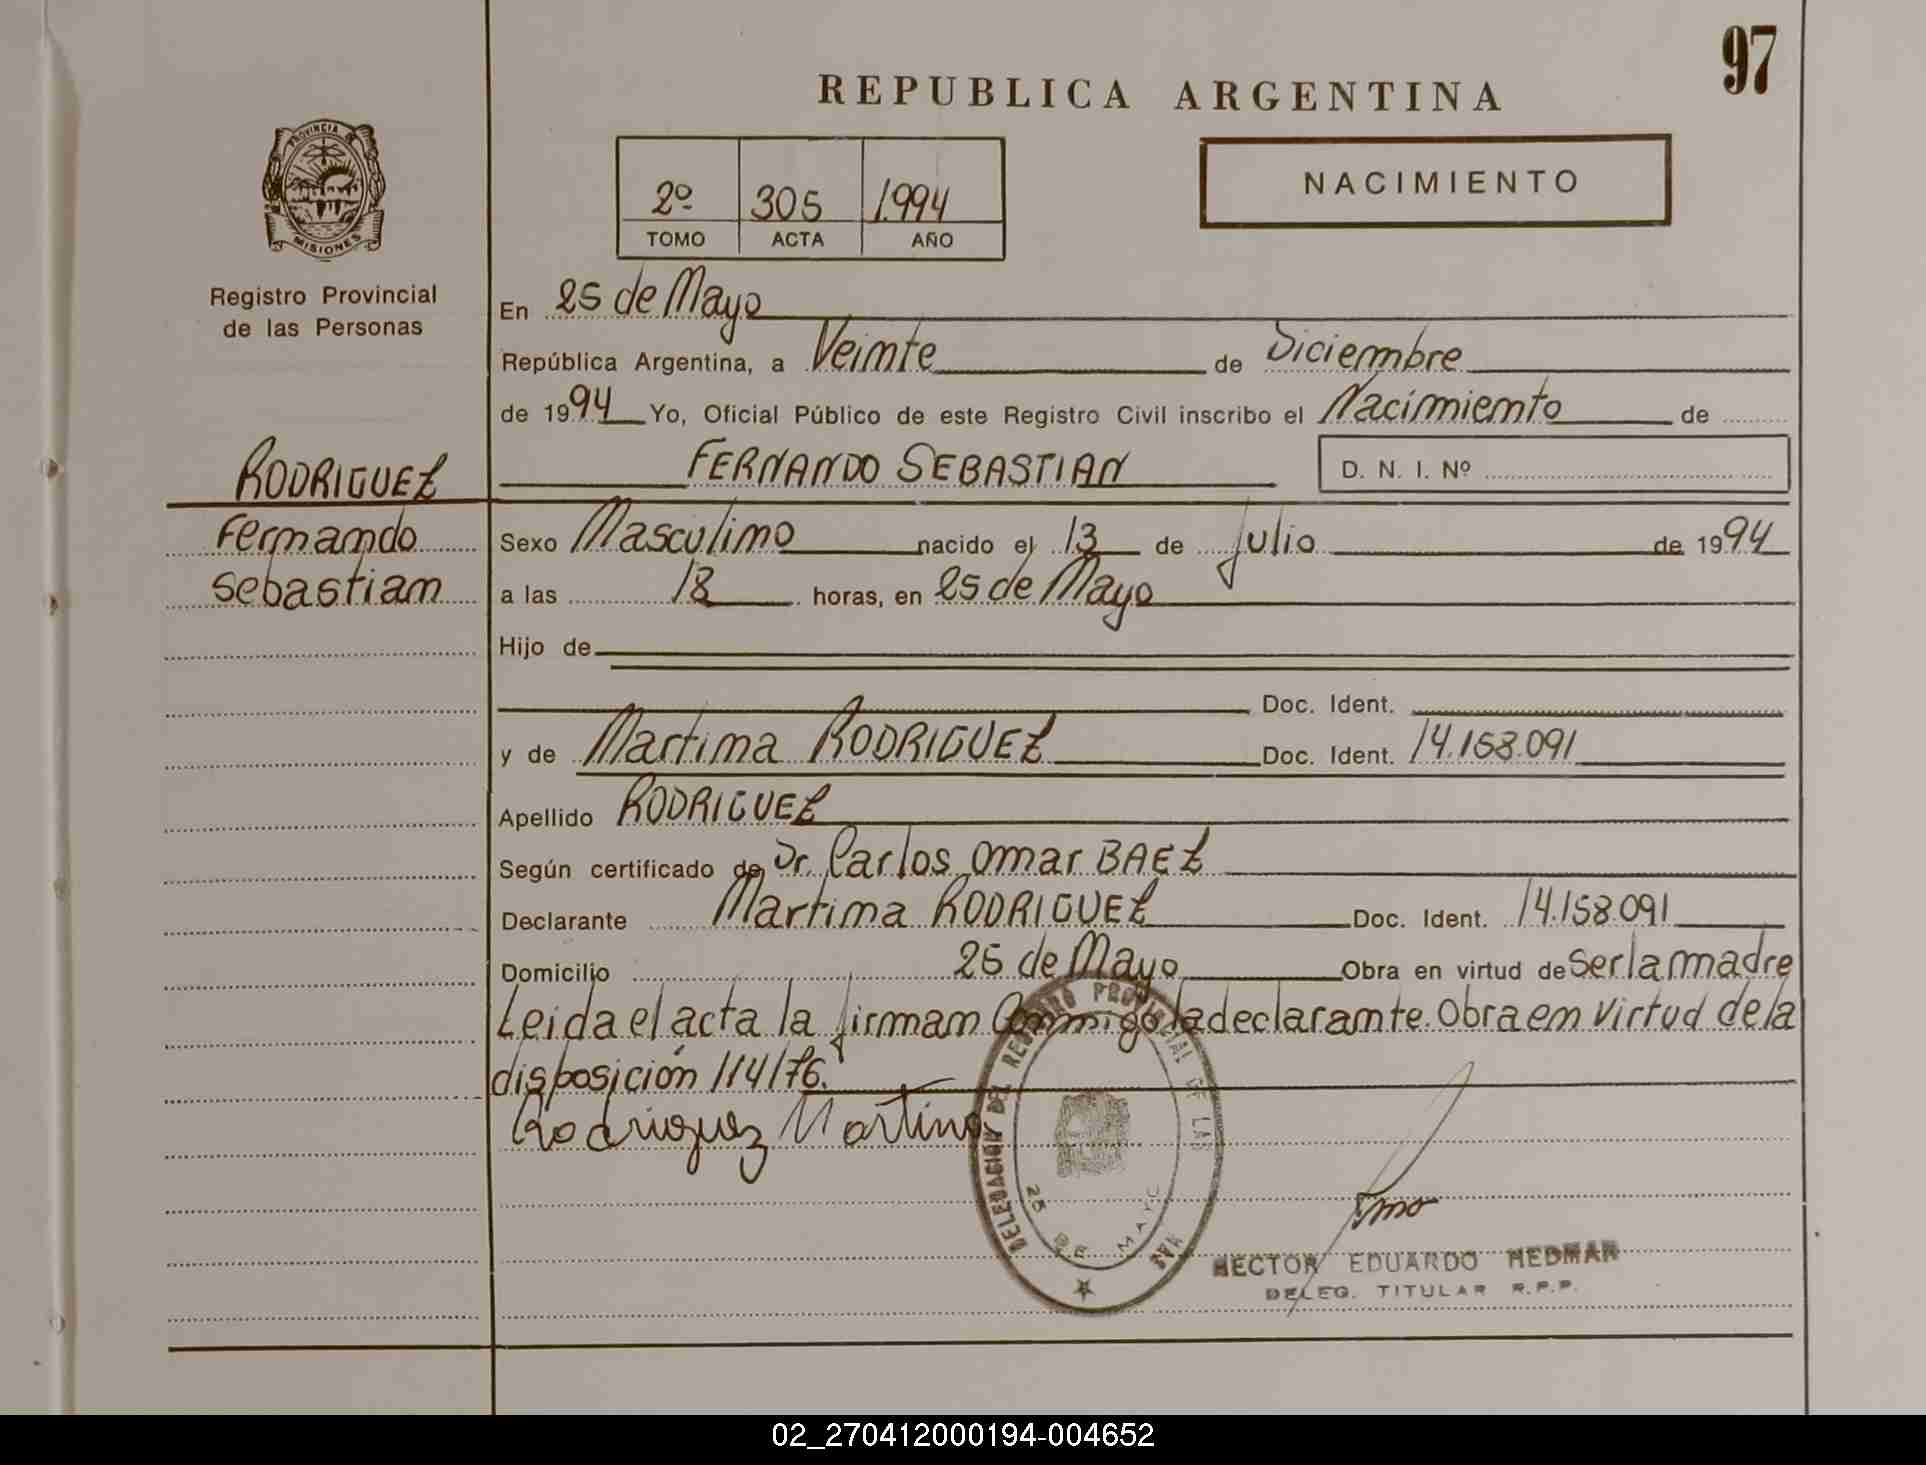 97
REPUBLICA ARGENTINA
PROVINCIA DE
MISIONES
2º 305 1994
TOMO ACTA AÑO
NACIMIENTO
Registro Provincial
de las Personas
En 25 de Mayo
República Argentina, a Veinte de Diciembre
de 1994 Yo, Oficial Público de este Registro Civil inscribo el Nacimiento de
RODRIGUEZ FERNANDO SEBASTIAN D. N. I. Nº
Fernando Sexo Masculino nacido el 13 de julio de 1994
Sebastian a las 18 horas, en 25 de Mayo
Hijo de
Doc. Ident.
y de Martina RODRIGUEZ Doc. Ident. 14.158.091
Apellido RODRIGUEZ
Según certificado de Dr. Carlos Omar BAEZ
Declarante Martina RODRIGUEZ Doc. Ident. 14.158.091
Domicilio 25 de Mayo Obra en virtud de Ser la madre
Leida el acta la firman Conmigo la declarante. Obra en virtud de la
disposición 114/76.
Rodriguez Martina
DELEGACION DEL REGISTRO PROVINCIAL DE LAS
25 DE MAYO
HECTOR EDUARDO HEDMAN
DELEG. TITULAR R.P.P.
02_270412000194-004652